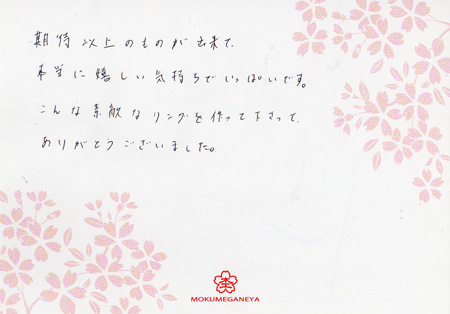 期待以上のものが出来て、
本当に嬉しい気持ちでいっぱいです。
こんな素敵なリングを作って下さって、
ありがとうございました。
MOKUMEGANEYA